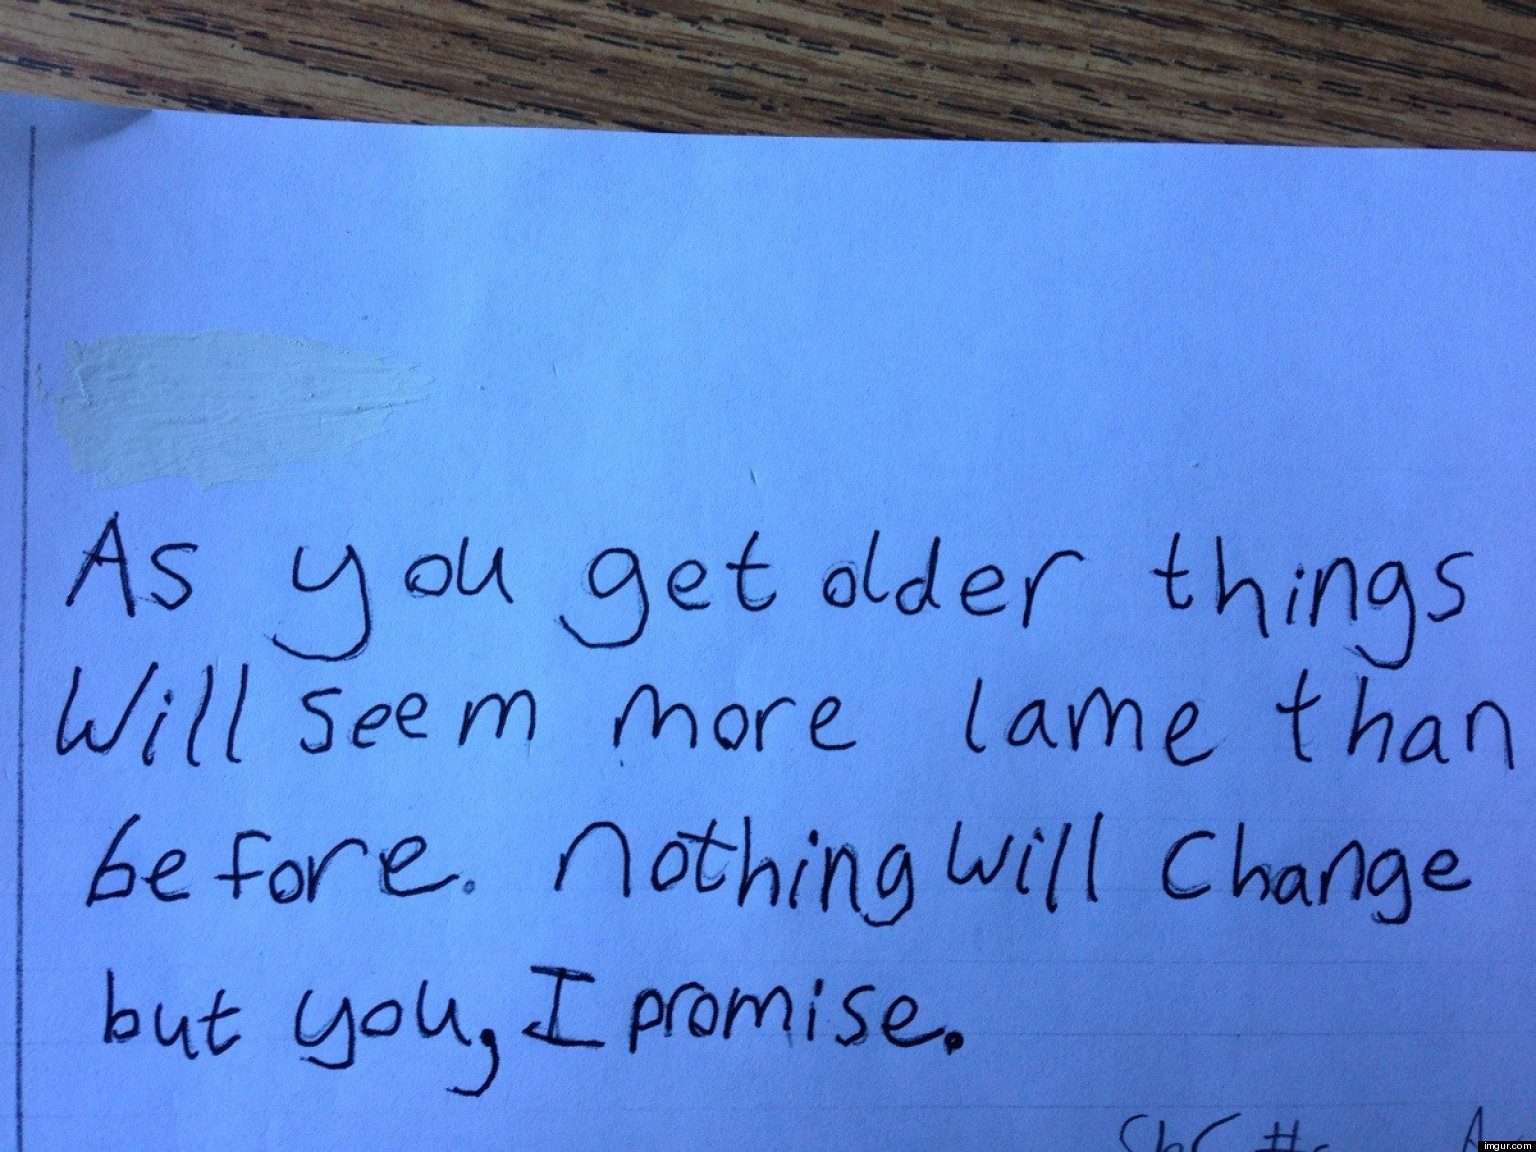 As you get older things
Will seem more lame than
before. nothing will Change
but you, I promise.
imgur.com